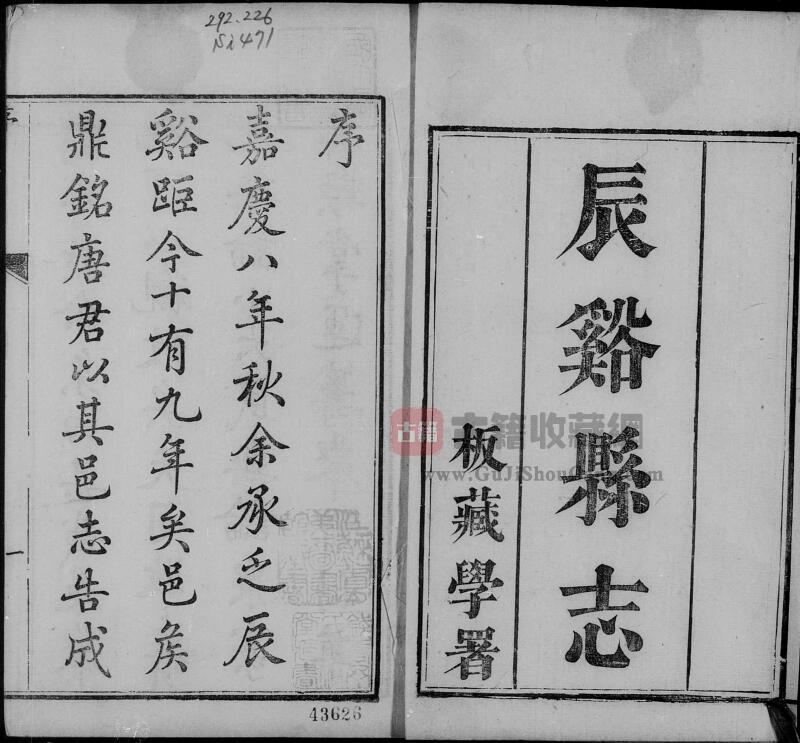 292.226
Ni471
辰谿縣志
板藏學署
序
嘉慶八年秋余承乏辰
谿距今十有九年矣邑矦
鼎銘唐君以其邑志告成
一
43626
古籍
古籍收藏網